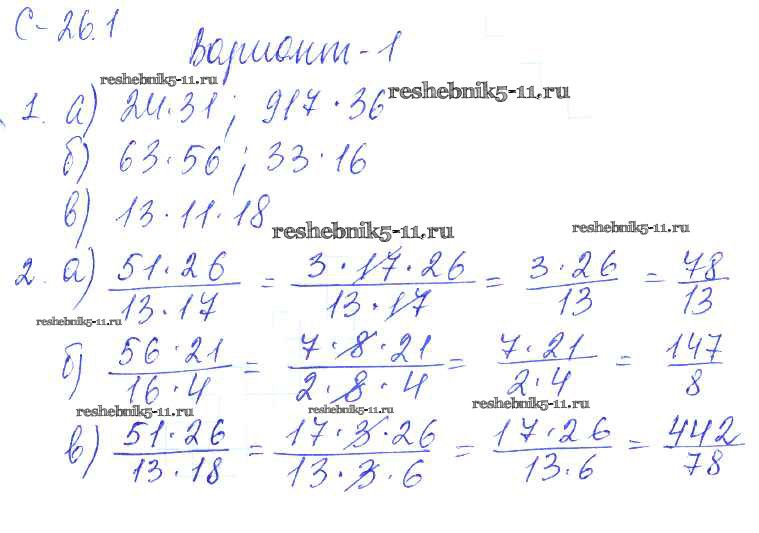 С-26.1
Вариант-1
reshebnik5-11.ru
reshebnik5-11.ru
1. а) 24·31; 917·36
б) 63·56; 33·16
в) 13·11·18
reshebnik5-11.ru
reshebnik5-11.ru
2. а) 51·26/13·17 = 3·17·26/13·17 = 3·26/13 = 78/13
reshebnik5-11.ru
б) 56·21/16·4 = 7·8·21/2·8·4 = 7·21/2·4 = 147/8
reshebnik5-11.ru
reshebnik5-11.ru
reshebnik5-11.ru
в) 51·26/13·18 = 17·3·26/13·3·6 = 17·26/13·6 = 442/78